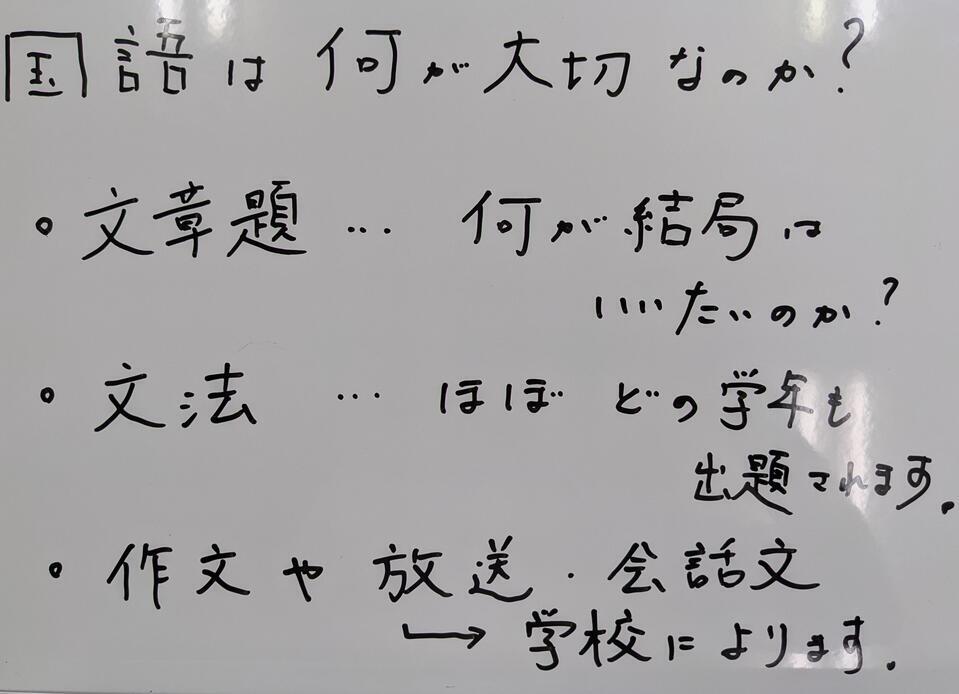 国語は何が大切なのか?
・文章題 … 何が結局は
いいたいのか?
・文法 … ほぼどの学年も
出題されます.
・作文や放送・会話文
↳ 学校によります.